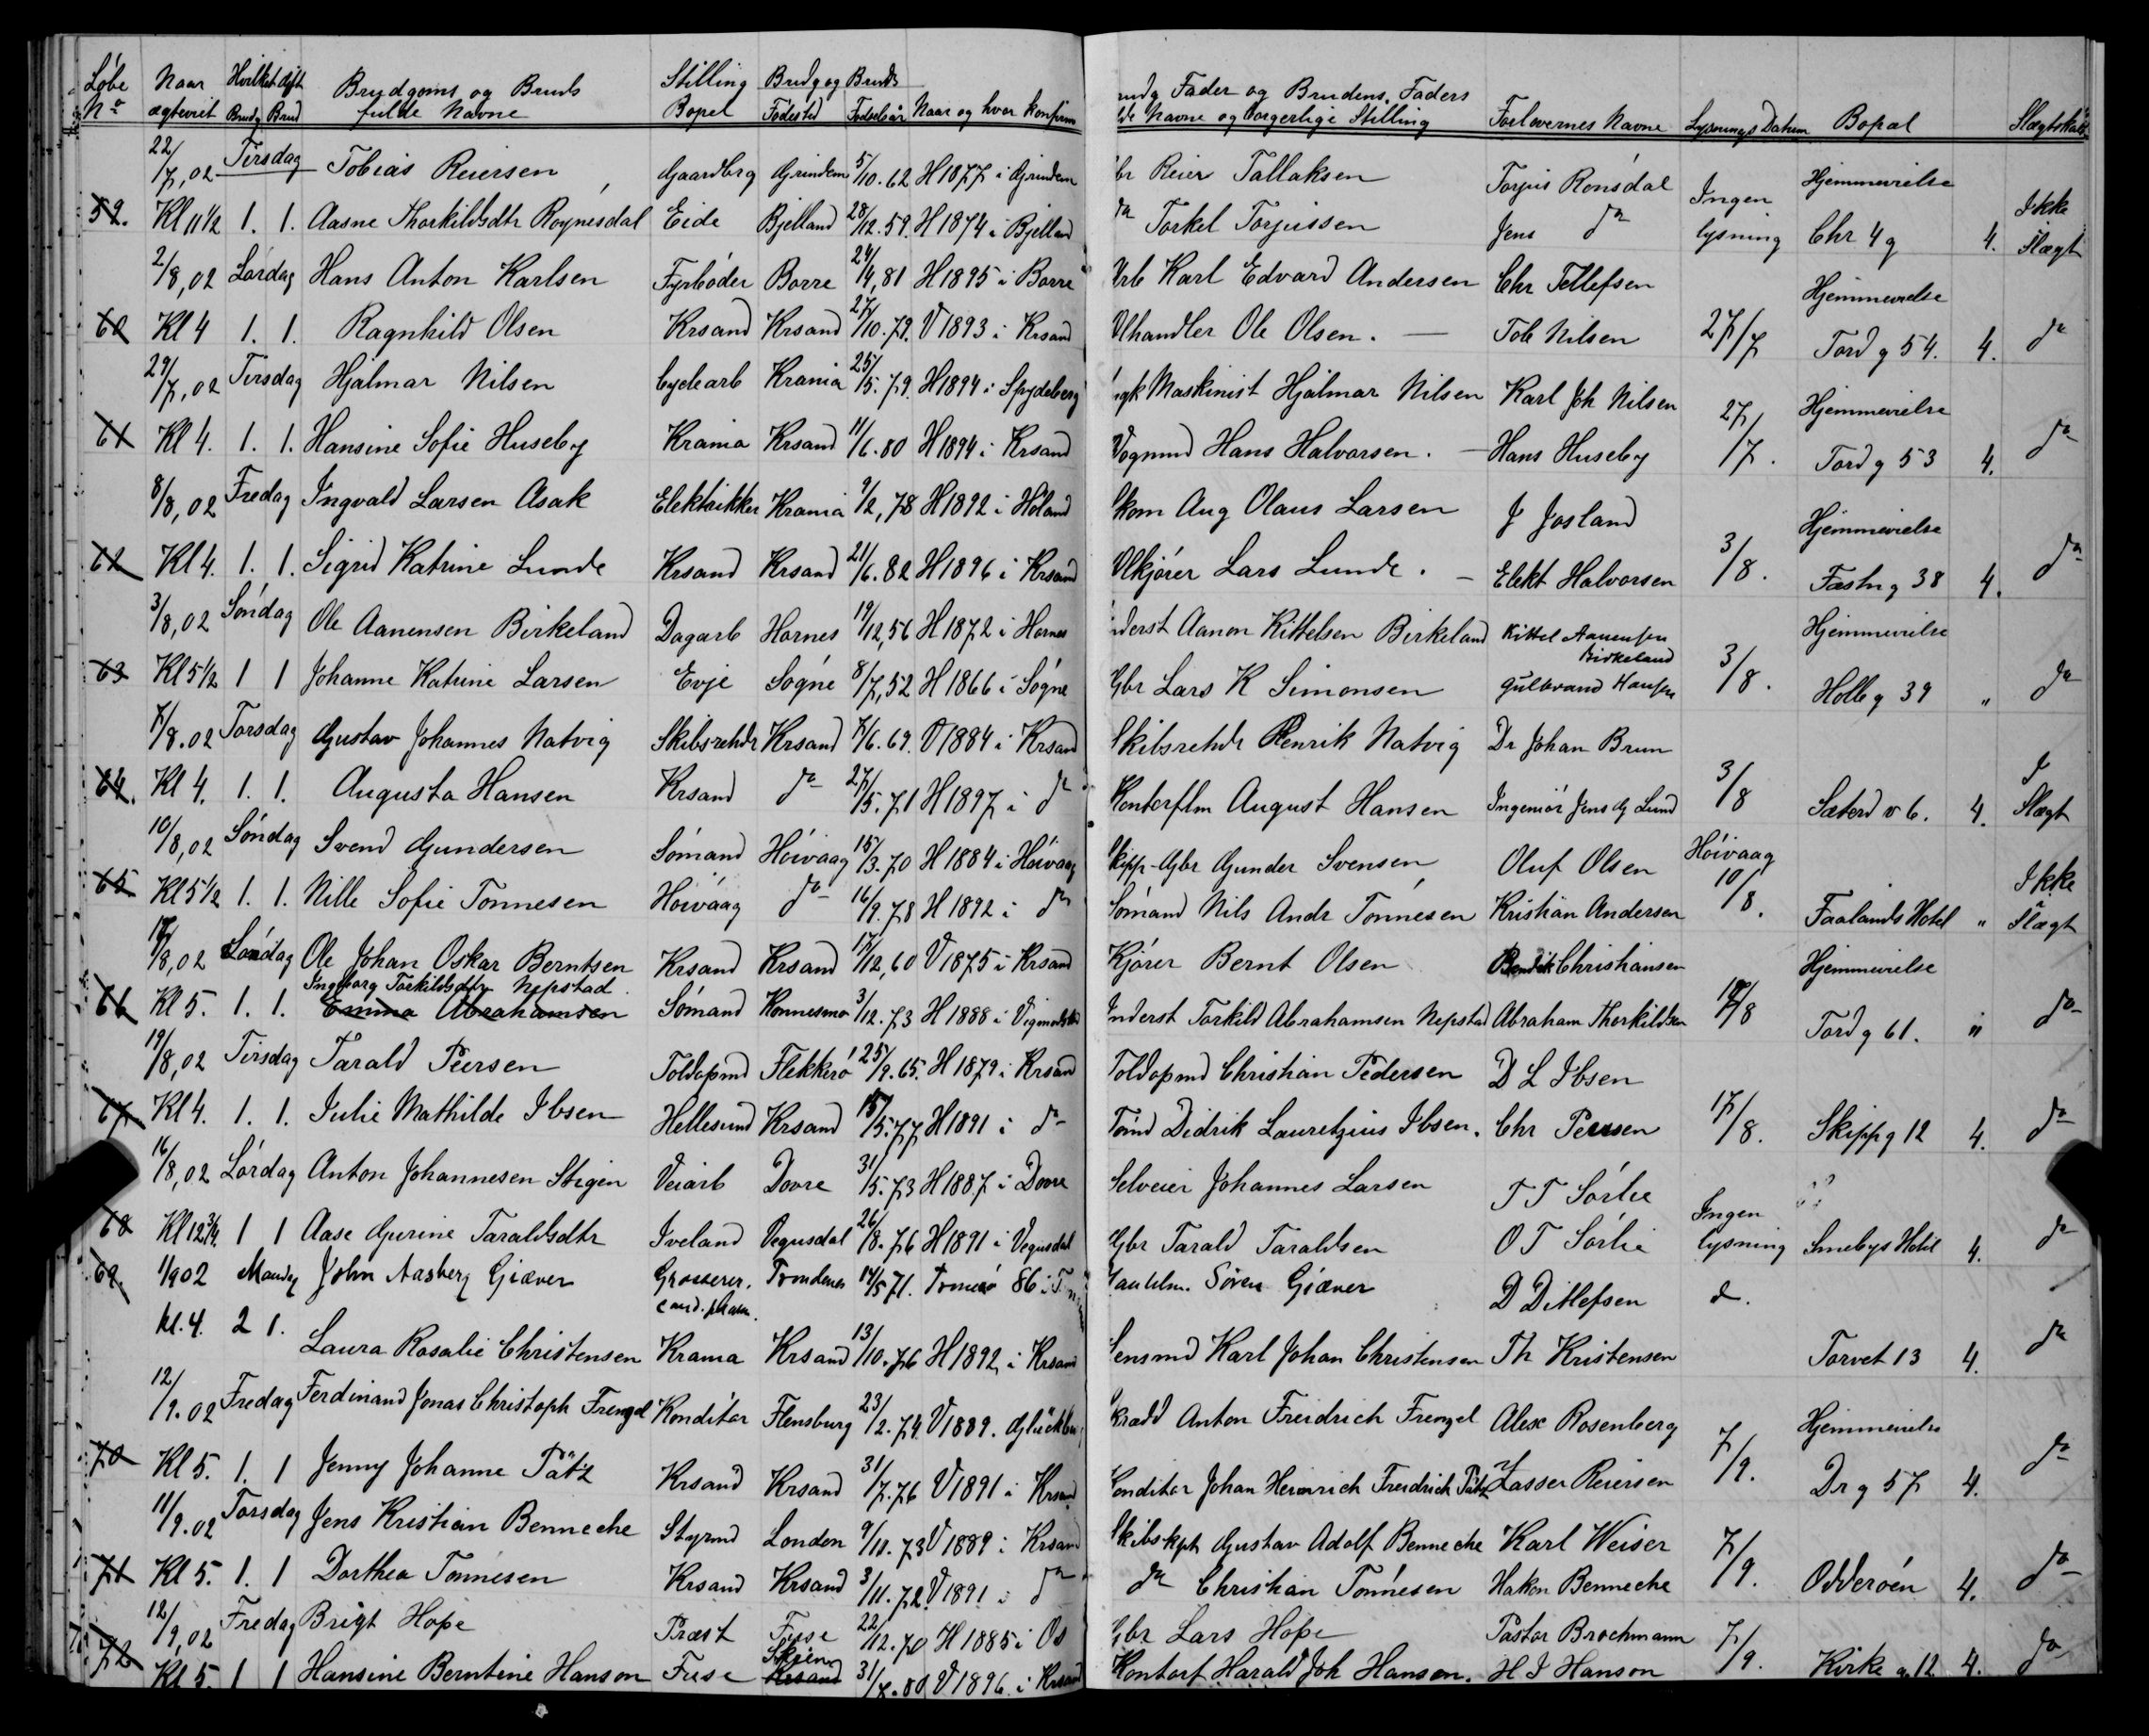 Løbe Naar Hvilket Ægt Brudgoms og Bruds Stilling Brudg og Bruds rudg Fader og Brudens Faders
No ægteviet Brudg Brud fulde Navne Bopel Fødested Fødselsår Naar og hvor konfirm Navne og borgerlige Stilling Forlovernes Navne Lysnings Datum Bopæl Slægtskab
22/7,02 Tirsdag Tobias Reiersen Gaardbrg Grindem 5/10.62 H 1877 i Grindem br Reier Tallaksen Torjus Ronsdal Ingen Hjemmevielse Ikke
59. Kl 11 1/2 1. 1. Aasne Thorkildsdtr Røynesdal Eide Bjelland 28/12.59. H 1874 i Bjelland do Torkel Torjussen Jens do lysning Chr 4 g 4. Slægt
2/8,02 Lørdag Hans Anton Karlsen Fyrbøder Borre 24/4,81 H 1895 i Borre Arb Karl Edvard Andersen Chr Tellefsen Hjemmevielse
60 Kl 4 1. 1. Ragnhild Olsen Krsand Krsand 27/10.79. V 1893 i Krsand Ølhandler Ole Olsen. — Tob Nilsen 27/7 Tord g 54. 4. do
29/7,02 Tirsdag Hjalmar Nilsen Cyclearb Krania 25/5.79. H 1894 i Spydeberg Maskinist Hjalmar Nilsen Karl Joh Nilsen Hjemmevielse
61 Kl 4. 1. 1. Hansine Sofie Huseby Krania Krsand 11/6.80 H 1894 i Krsand Vognmd Hans Halvorsen. — Hans Huseby 27/7. Tord g 53 4. do
8/8,02 Fredag Ingvald Larsen Asak Elektrikker Krania 9/2,78 H 1892 i Høland Skom Aug Olaus Larsen J Josland Hjemmevielse
62 Kl 4. 1. 1. Sigrid Katrine Lunde Krsand Krsand 21/6.82 H 1896 i Krsand Ølkjører Lars Lunde. — Elekt Halvorsen 3/8. Fæstn g 38 4. do
3/8,02 Søndag Ole Aanensen Birkeland Dagarb Hornes 19/12,56 H 1872 i Hornes Inderst Aanon Kittelsen Birkeland Kittel Aanensen Birkeland Hjemmevielse
63 Kl 5 1/2 1 1 Johanne Katrine Larsen Evje Søgne 8/7,52 H 1866 i Søgne Gbr Lars K Simonsen Gulbrand Hansen 3/8. Holb g 39 " do
7/8.02 Torsdag Gustav Johannes Natvig Skibsrehdr Krsand 7/6.69. V 1884 i Krsand Skibsrehdr Henrik Natvig Dr Johan Brun
64. Kl 4. 1. 1. Augusta Hansen Krsand do 27/5.71 H 1897 i do Kontorflm August Hansen Ingeniør Jens G Lund 3/8 Sæterd v 6. 4. I Slægt
10/8,02 Søndag Svend Gundersen Sømand Høivaag 15/3.70 H 1884 i Høivaag Skipp-Gbr Gunder Svensen Oluf Olsen Høivaag Ikke
65 Kl 5 1/2 1. 1. Nille Sofie Tønnesen Høivaag do 16/9.78 H 1892 i do Sømand Nils Andr Tønnesen Kristian Andersen 10/8. Faalands Hotel " Slægt
/8,02 Lørdag Ole Johan Oskar Berntsen Krsand Krsand 17/12,60 V 1875 i Krsand Kjører Bernt Olsen Bendik Christiansen Hjemmevielse
Ingeborg Torkildsdtr Nepstad
66 Kl 5. 1. 1. Emma Abrahamsen Sømand Konnesmo 3/12.73 H 1888 i Vigmostad Inderst Torkild Abrahamsen Nepstad Abraham Thorkildsen /8 Tord g 61. " do
19/8,02 Tirsdag Tarald Peersen Toldopmd Flekkerø 25/9.65. H 1879 i Krsand Toldopmd Christian Pedersen D L Ibsen
67 Kl 4. 1. 1. Julie Mathilde Ibsen Hellesund Krsand 15/5.77 H 1891 i do Tømd Didrik Lauretzius Ibsen. Chr Peersen 17/8. Skipp g 12 4. do
16/8,02 Lørdag Anton Johannesen Stigen Veiarb Dovre 31/5.73 H 1887 i Dovre Selveier Johannes Larsen T T Sørlie Ingen
68 Kl 12 3/4 1 1 Aase Gurine Taraldsdtr Iveland Vegusdal 26/8.76 H 1891 i Vegusdal Gbr Tarald Taraldsen O T Sørlie lysning Smebys Hotel 4. do
69. 1/9 02 Mandag John Aasberg Giæver Grosserer, cand. pharm. Trondenes 14/5 71. Tromsø 86 Søren Giæver D Ditlefsen d.
Kl. 4. 2 1. Laura Rosalie Christensen Krania Krsand 13/10.76 H 1892 i Krsand Lensmd Karl Johan Christensen Th Kristensen Torvet 13 4. do
12/9.02 Fredag Ferdinand Jonas Christoph Frenzel Konditor Flensburg 23/2.74 V 1889. Skrædd Anton Freidrich Frenzel Alex Rosenberg Hjemmevielse
70 Kl 5. 1. 1 Jenny Johanne Pätz Krsand Krsand 31/7.76 V 1891 i Krsand Konditor Johan Heinrich Freidrich Pätz Lasser Reiersen 7/9. Dr g 57 4. do
11/9.02 Torsdag Jens Kristian Benneche Styrmd London 9/11.73 V 1889 i Krsand Skibskpt Gustav Adolf Benneche Karl Weiser
71 Kl 5. 1. 1 Dorthea Tønnesen Krsand Krsand 3/11.72. V 1891 i do do Christian Tønnesen Hakon Benneche 7/9. Odderøen 4. do
12/9,02 Fredag Brigt Hope Præst Fuse 22/12.70 H 1885 i Os Gbr Lars Hope Pastor Brochmann
72 Kl 5. 1 1 Hansine Berntine Hanson Fuse Skien Krsand 31/7.80 V 1896 i Krsand Kontorf Harald Joh Hansen. H J Hanson 7/9. Kirke g 12 4. do